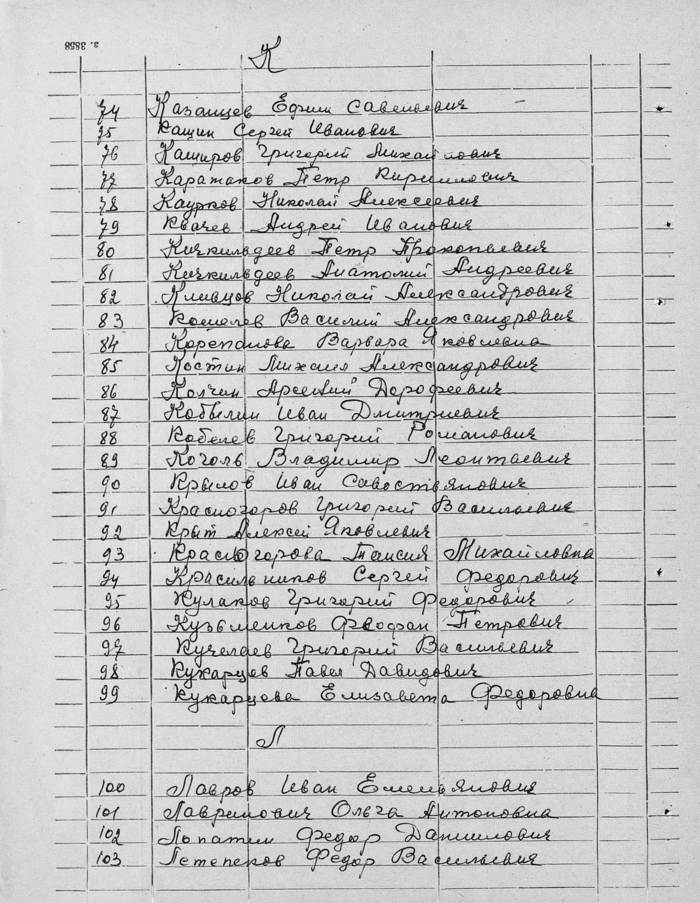 з. 3858
К
74 Казанцев Ефим Савельевич
75 Кашин Сергей Иванович
76 Каширов Григорий Михайлович
77 Каратаков Петр Кириллович
78 Каурков Николай Алексеевич
79 Квачев Андрей Иванович
80 Кичкильдеев Петр Прокопьевич
81 Кичкильдеев Анатолий Андреевич
82 Кливцов Николай Александрович
83 Кошелев Василий Александрович
84 Корепанова Варвара Яковлевна
85 Костин Михаил Александрович
86 Колчин Арсений Дорофеевич
87 Кобылин Иван Дмитриевич
88 Кобелев Григорий Романович
89 Коголь Владимир Леонтьевич
90 Крылов Иван Савостьянович
91 Красногоров Григорий Васильевич
92 Крыт Алексей Яковлевич
93 Красногорова Таисия Михайловна
94 Красильников Сергей Федорович
95 Кулаков Григорий Федорович
96 Кузьменков Феофан Петрович
97 Григорий Васильевич
98 Кухарцев Павел Давидович
99 Кухарцева Елизавета Федоровна
Л
100 Лавров Иван Емельянович
101 Лавринович Ольга Антоновна
102 Лопатин Федор Данилович
103 Летепеков Федор Васильевич